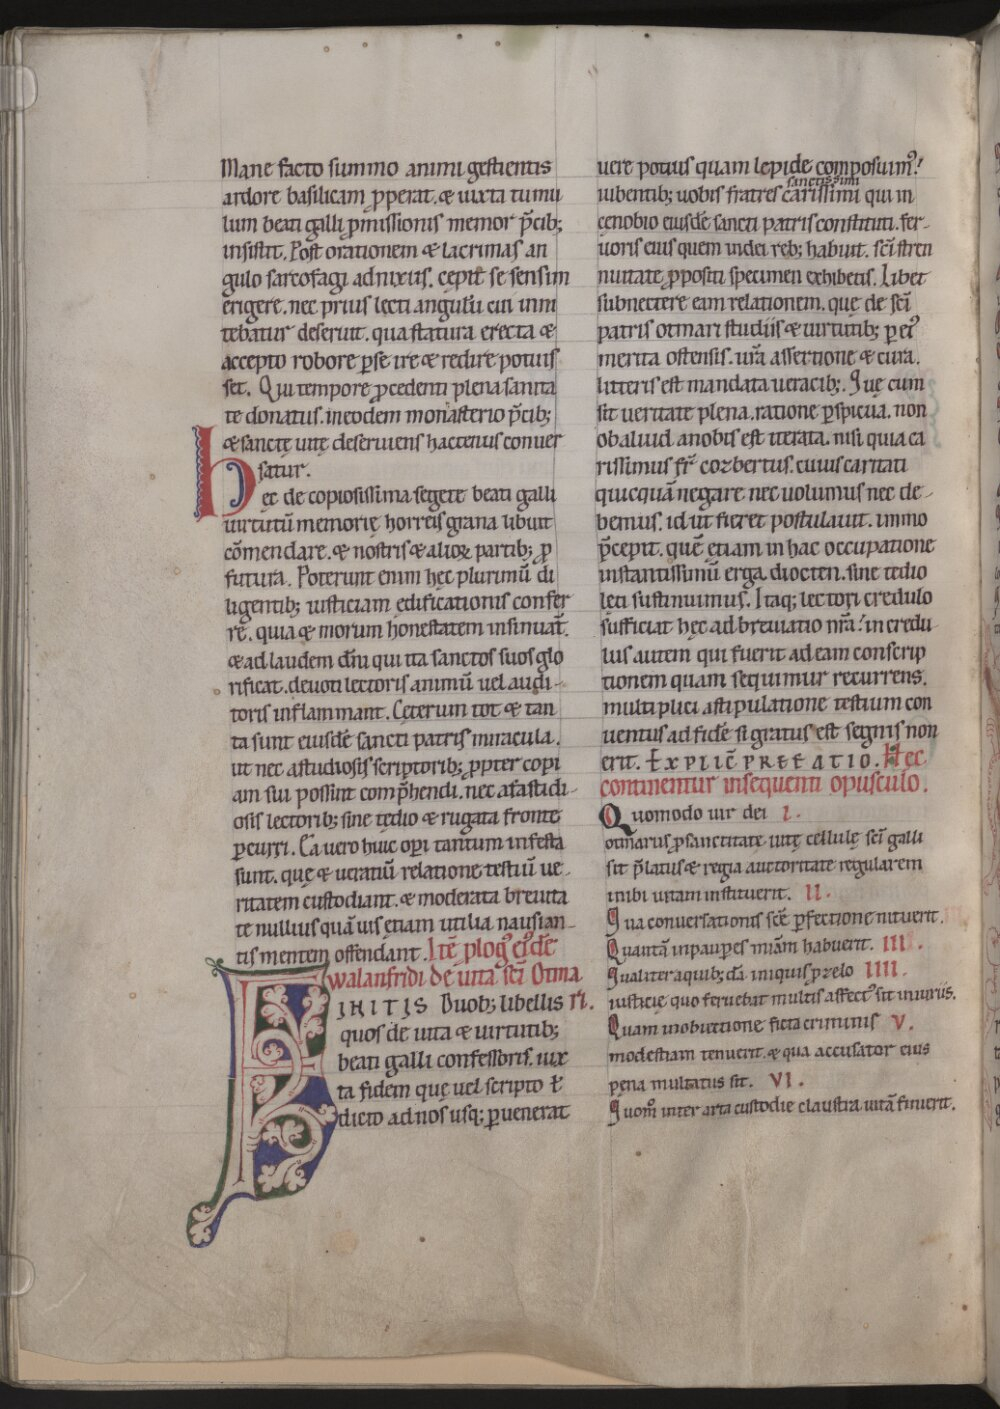 Mane facto summo animi gestientis
ardore basilicam ꝓperat. & iuxta tumu
lum beati galli ꝓmissionis memor p̄cib;
insistit. Post orationem & lacrimas an
gulo sarcofagi adnixus. cępit se sensim
erigere. nec prius lecti angulū cui inni
tebatur deseruit. qua statura erecta &
accepto robore ꝑse ire & redire potuis
set. Qui tempore ꝓcedenti plena sanita
te donatus. ineodem monasterio p̄cib;
& sanctę uitę deseruiens hactenus conuer
satur.
Hec de copiosissima segete beati galli
uirtutū memorię horreis grana libuit
cōmendare. & nostris & alioꝝ partib; ꝓ
futura. Poterunt enim hęc plurimū di
ligentib; iusticiam edificationis confer
re. quia & morum honestatem insinuāt.
& ad laudem dn̄i qui ita sanctos suos glo
rificat. deuoti lectoris animū uel audi-
toris inflammant. Cęterum tot & tan
ta sunt eiusdē sancti patris miracula.
ut nec astudiosis scriptorib; ꝓpter copi
am sui possint comp̄hendi. nec afastidi-
osis lectorib; sine tędio & rugata fronte
ꝑcurri. Ea uero huic oꝑi tantum infesta
sunt. quę & ueratiū relatione testiū ue-
ritatem custodiant. & moderata breuita
te nullius quāuis etiam utilia nausian-
tis mentem offendant. Itē ꝓlogꝰ eiꝰdē
walanfridi de uita sc̄i Otma
FINITIS Duob; libellis ri.
quos de uita & uirtutib;
beati galli confessoris. iux
ta fidem quę uel scripto ł
dicto ad nos usq; ꝑuenerat
uere potius quam lepide composuimꝰ!
sanctissimi
iubentib; uobis fratres carissimi qui in
cęnobio eiusdē sancti patris constituti. fer-
uoris eius quem indei reb; habuit. sc̄i stren
nuitate ꝓpositi specimen exhibetis. Libet
subnectere eam relationem. quę de sc̄i
patris otmari studiis & uirtutib; ꝑ eiꝰ
merita ostensis. ur̄a assertione & cura.
litteris est mandata ueracib;. Quę cum
sit ueritate plena. ratione ꝑspicua. non
obaliud anobis est iterata. nisi quia ca
rissimus fr̄ cozbertus. cuius caritati
quicquā negare nec uolumus nec de-
bemus. id ut fieret postulauit. immo
p̄cepit. quē etiam in hac occupatione
instantissimū erga diocten. sine tedio
lęti sustinuimus. Itaq; lectori credulo
sufficiat hęc ad breuiatio nr̄a! in credu-
lus autem qui fuerit ad eam conscrip
tionem quam sequimur recurrens.
multiplici astipulatione testium con
uentus ad fidē si gratus est segnis non
erit. EXPLIC̄ PREFATIO. Hec
continentur insequenti opusculo.
Quomodo uir dei I.
otmarus ꝓ sanctitate uitę cellulę sc̄i galli
sit p̄latus & regia auctoritate regularem
inibi uitam instituerit. II.
Qua conuersationis scē ꝑfectione nituerit. III
Quantā inpauꝑes miām habuerit. III.
Qualiter aquib;dā iniquis ꝓ zelo IIII.
iusticię quo feruebat multis affectꝰ sit iniuriis.
Quam inobiectione ficta criminis V.
modestiam tenuerit. & qua accusator eius
pęna multatus sit. VI.
Quom̄ inter arta custodie claustra uitā finierit.